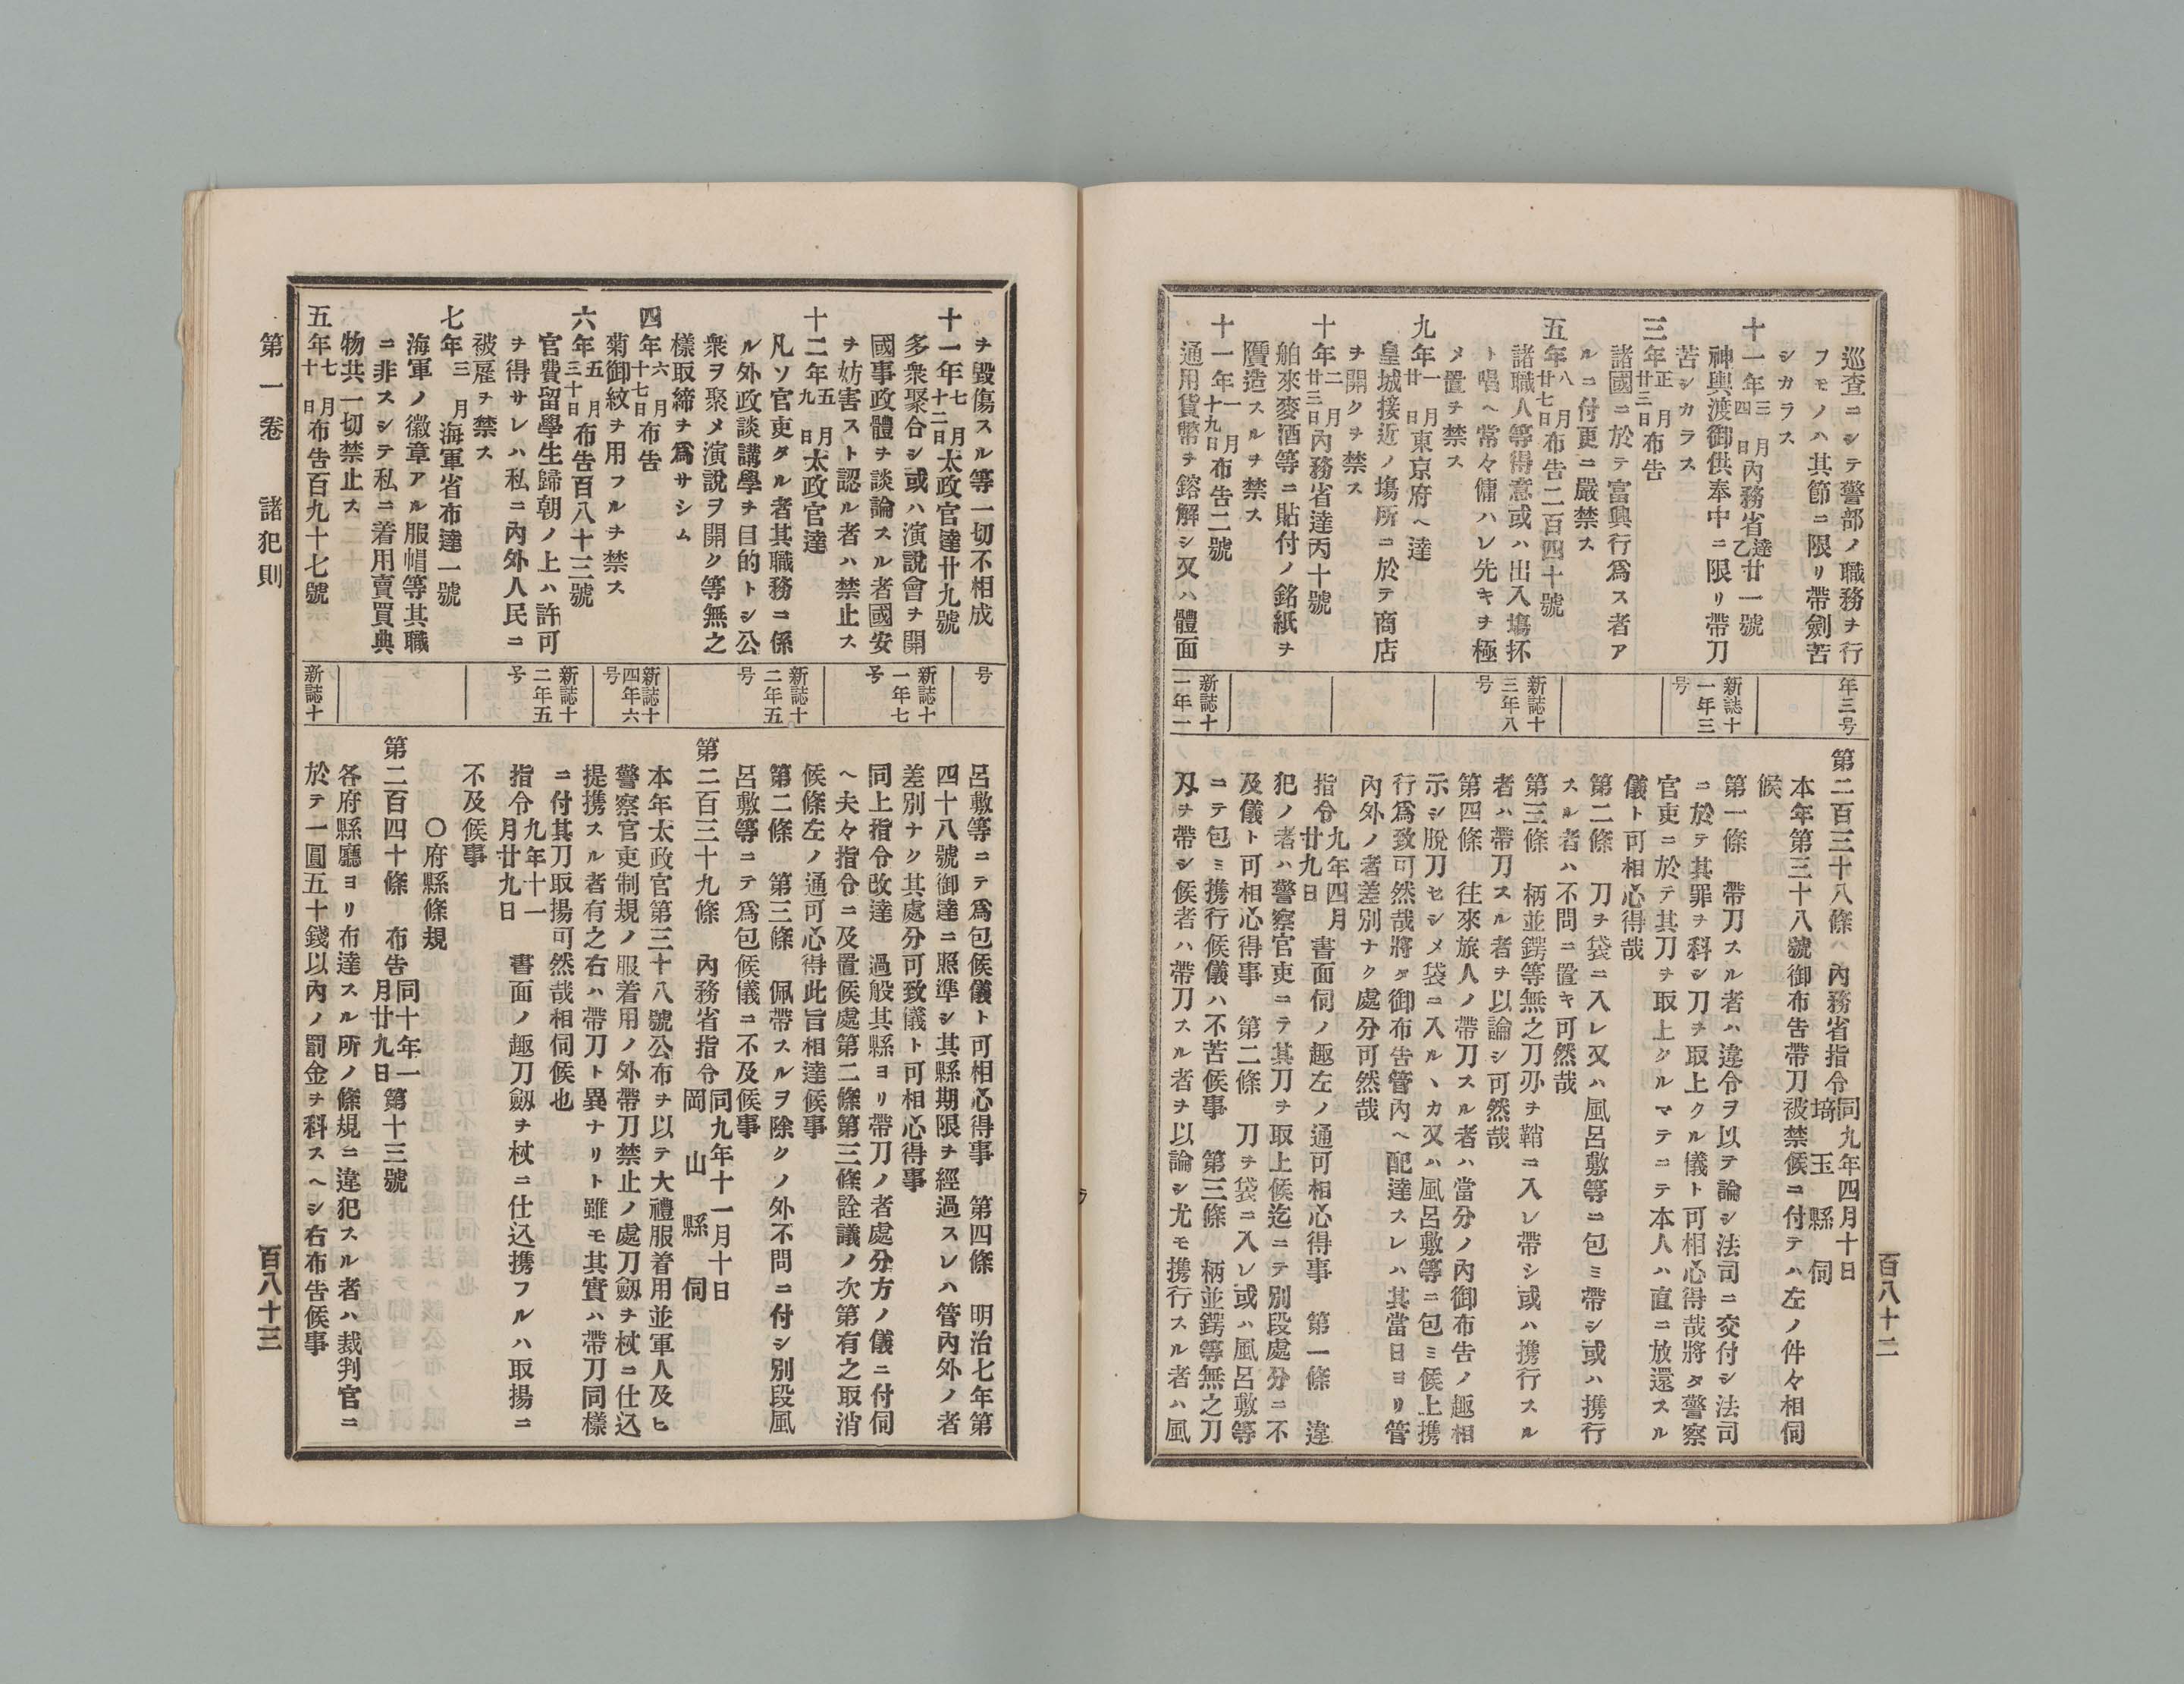 巡査ニシテ警部ノ職務ヲ行
フモノハ其節ニ限リ帶劍苦
シカラス
十一年三月四日內務省達乙廿一號
神輿渡御供奉中ニ限リ帶刀
苦シカラス
三年正月廿三日布告
諸國ニ於テ富興行爲ス者ア
ルニ付更ニ嚴禁ス
五年八月廿七日布告二百四十號
諸職人等得意或ハ出入塲抔
ト唱ヘ常々傭ハレ先キヲ極
メ置ヲ禁ス
九年一月廿日東京府ヘ達
皇城接近ノ塲所ニ於テ商店
ヲ開クヲ禁ス
十年二月廿三日內務省達丙十號
舶來麥酒等ニ貼付ノ銘紙ヲ
贋造スルヲ禁ス
十一年一月十九日布告二號
通用貨幣ヲ鎔解シ又ハ體面
年三号
新誌十一年三号
新誌十三年八号
新誌十一年一
第二百三十八條 內務省指令同九年四月十日 埼玉縣伺
本年第三十八號御布告帶刀被禁候ニ付テハ左ノ件々相伺
候
第一條 帶刀スル者ハ違令ヲ以テ論シ法司ニ交付シ法司
ニ於テ其罪ヲ科シ刀ヲ取上クル儀ト可相心得哉將タ警察
官吏ニ於テ其刀ヲ取上クルマテニテ本人ハ直ニ放還スル
儀ト可相心得哉
第二條 刀ヲ袋ニ入レ又ハ風呂敷等ニ包ミ帶シ或ハ携行
スル者ハ不問ニ置キ可然哉
第三條 柄並鍔等無之刀刃ヲ鞘ニ入レ帶シ或ハ携行スル
者ハ帶刀スル者ヲ以論シ可然哉
第四條 往來旅人ノ帶刀スル者ハ當分ノ內御布告ノ趣相
示シ脫刀セシメ袋ニ入ル丶カ又ハ風呂敷等ニ包ミ候上携
行爲致可然哉將タ御布告管內ヘ配達スレハ其當日ヨリ管
內外ノ者差別ナク處分可然哉
指令九年四月廿九日 書面伺ノ趣左ノ通可相心得事 第一條 違
犯ノ者ハ警察官吏ニテ其刀ヲ取上候迄ニテ別段處分ニ不
及儀ト可相心得事 第二條 刀ヲ袋ニ入レ或ハ風呂敷等
ニテ包ミ携行候儀ハ不苦候事 第三條 柄並鍔等無之刀
刄ヲ帶シ候者ハ帶刀スル者ヲ以論シ尤モ携行スル者ハ風
百八十二
ヲ毀傷スル等一切不相成
十一年七月十二日太政官達廿九號
多衆聚合シ或ハ演說會ヲ開
國事政體ヲ談論スル者國安
ヲ妨害スト認ル者ハ禁止ス
十二年五月九日太政官達
凡ソ官吏タル者其職務ニ係
ル外政談講學ヲ目的トシ公
衆ヲ聚メ演說ヲ開ク等無之
樣取締ヲ爲サシム
四年六月十七日布告
菊御紋ヲ用フルヲ禁ス
六年五月三十日布告百八十三號
官費留學生歸朝ノ上ハ許可
ヲ得サレハ私ニ內外人民ニ
被雇ヲ禁ス
七年三月海軍省布達一號
海軍ノ徽章アル服帽等其職
ニ非スシテ私ニ着用賣買典
物共一切禁止ス
五年七月十日布告百九十七號
号
新誌十一年七号
新誌十二年五号
新誌十四年六号
新誌十二年五号
新誌十
呂敷等ニテ爲包候儀ト可相心得事 第四條 明治七年第
四十八號御達ニ照準シ其縣期限ヲ經過スレハ管內外ノ者
差別ナク其處分可致儀ト可相心得事
同上指令改達 過般其縣ヨリ帶刀ノ者處分方ノ儀ニ付伺
ヘ夫々指令ニ及置候處第二條第三條詮議ノ次第有之取消
候條左ノ通可心得此旨相達候事
第二條 第三條 佩帶スルヲ除クノ外不問ニ付シ別段風
呂敷等ニテ爲包候儀ニ不及候事
第二百三十九條 內務省指令同九年十一月十日 岡山縣伺
本年太政官第三十八號公布ヲ以テ大禮服着用並軍人及ヒ
警察官吏制規ノ服着用ノ外帶刀禁止ノ處刀劔ヲ杖ニ仕込
提携スル者有之右ハ帶刀ト異ナリト雖モ其實ハ帶刀同樣
ニ付其刀取揚可然哉相伺候也
指令九年十一月廿九日 書面ノ趣刀劔ヲ杖ニ仕込携フルハ取揚ニ
不及候事
〇府縣條規
第二百四十條 布告同十年一月廿九日第十三號
各府縣廳ヨリ布達スル所ノ條規ニ違犯スル者ハ裁判官ニ
於テ一圓五十錢以內ノ罰金ヲ科スヘシ右布告候事
第一卷 諸犯則
百八十三